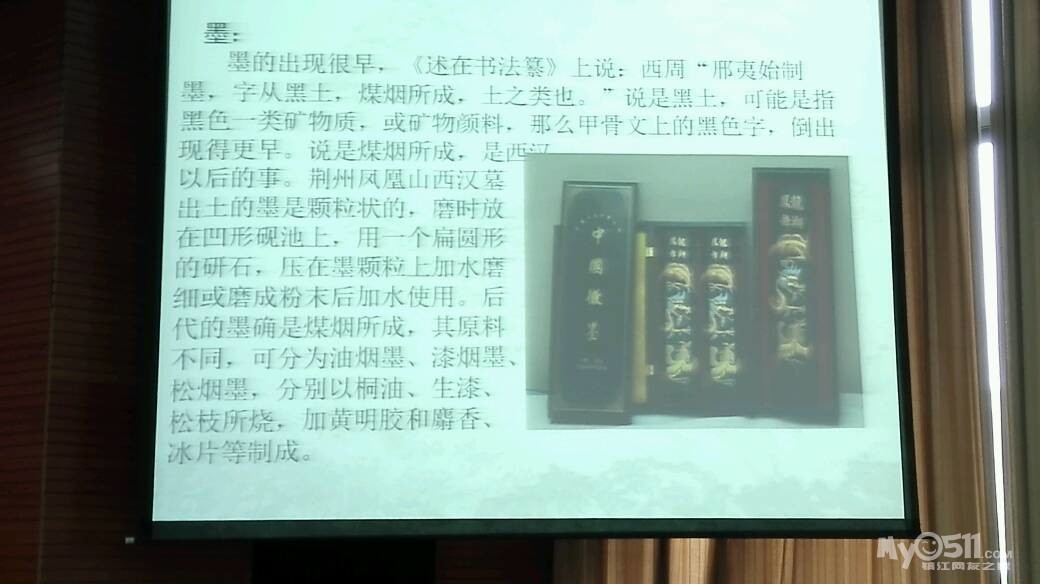 墨:
墨的出现很早，《述在书法纂》上说：西周“邢夷始制
墨，字从黑土，煤烟所成，土之类也。”说是黑土，可能是指
黑色一类矿物质，或矿物颜料，那么甲骨文上的黑色字，倒出
现得更早。说是煤烟所成，是西汉
以后的事。荆州凤凰山西汉墓
出土的墨是颗粒状的，磨时放
在凹形砚池上，用一个扁圆形
的研石，压在墨颗粒上加水磨
细或磨成粉末后加水使用。后
代的墨确是煤烟所成，其原料
不同，可分为油烟墨、漆烟墨、
松烟墨，分别以桐油、生漆、
松枝所烧，加黄明胶和麝香、
冰片等制成。
中國徽墨
My0511.COM
镇江网友之家